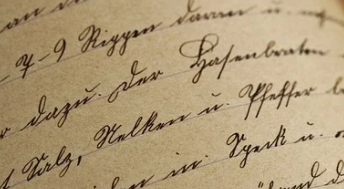 an den
7-9 Rippen daran u.
dazu. Der Hasenbraten
Salz, Nelken u. Pfeffer
in Speck u.